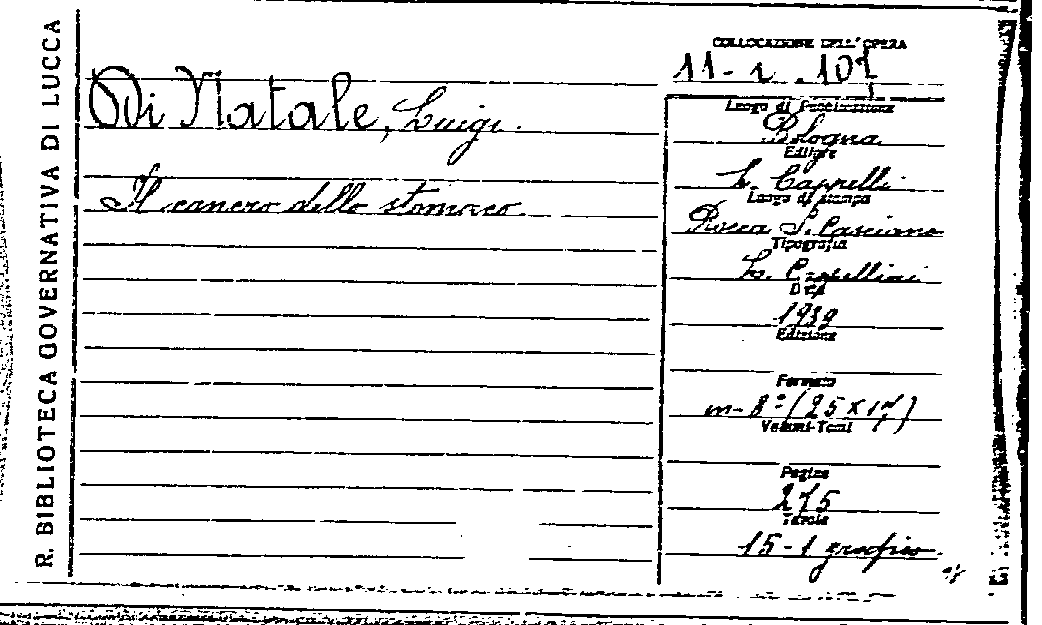 R. BIBLIOTECA GOVERNATIVA DI LUCCA
Di Natale, Luigi.
Il cancro dello stomaco
COLLOCAZIONE DELL'OPERA
11-2.107
Luogo di Pubblicazione
Bologna
Editore
L. Cappelli
Luogo di stampa
Rocca S. Casciano
Tipografia
L. Cappellini
Data
1939
Edizione
Formato
in-8° (25x17)
Volumi-Tomi
Pagine
275
Tavole
15-1 grafico